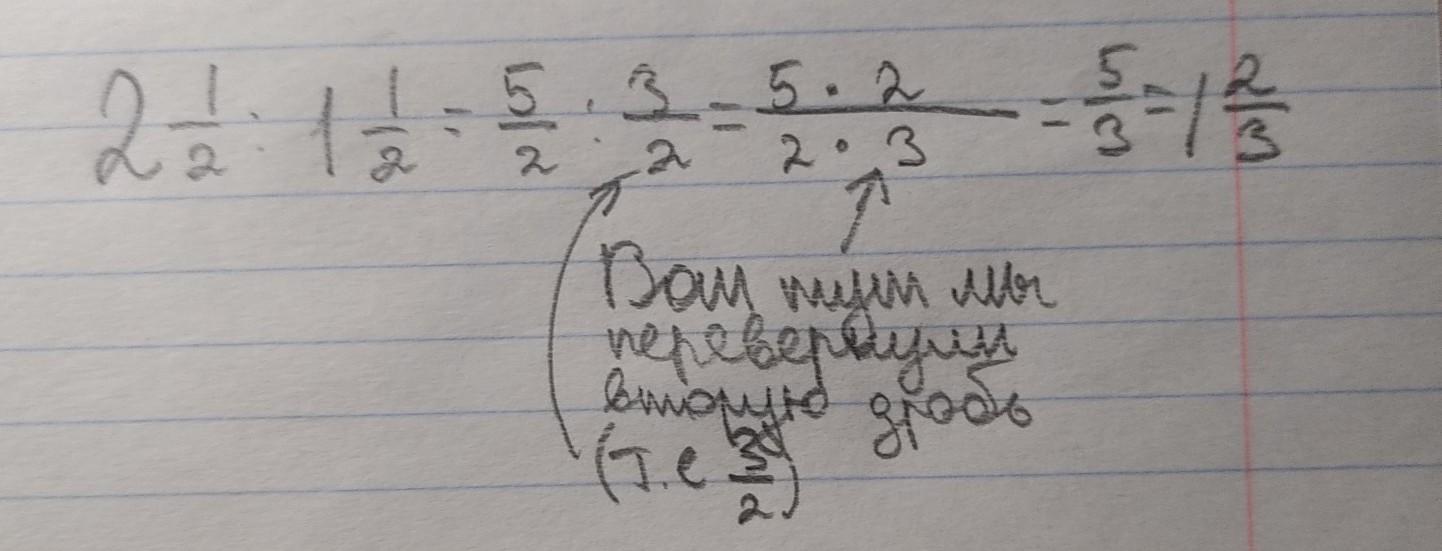 2 1/2 : 1 1/2 = 5/2 : 3/2 = 5 · 2 / 2 · 3 = 5/3 = 1 2/3
Вот тут мы
перевернули
вторую дробь
(т.е 3/2)